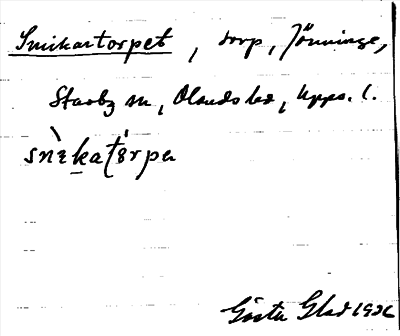 Snikartorpet, torp, Jönninge,
Starby sn, Olands hd, Upps. l.
snèkatɵ́rpen
Gösta Glad 1926